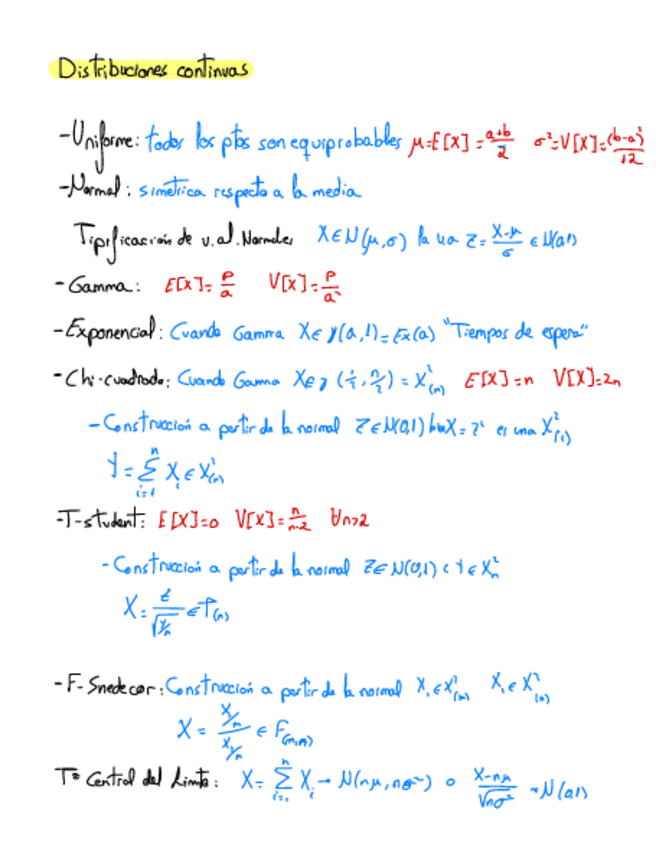 Distribuciones continuas
-Uniforme: todos los ptos son equiprobables μ=E[X]=a+b/2 σ²=V[X]=(b-a)²/12
-Normal: simétrica respecto a la media
Tipificación de v.al. Normales X∈N(μ,σ) la va Z=X-μ/σ ∈N(0,1)
-Gamma: E[X]=p/a V[X]=p/a²
-Exponencial: Cuando Gamma X∈γ(a,1)=Ex(a) "Tiempos de espera"
-Chi-cuadrado: Cuando Gamma X∈γ(½,n/2)=X²(n) E[X]=n V[X]=2n
-Construcción a partir de la normal Z∈N(0,1) X=Z² es una X²(1)
Y=∑ⁿᵢ₌₁ Xᵢ∈X²(n)
-T-student: E[X]=0 V[X]=n/n-2 ∀n>2
-Construcción a partir de la normal Z∈N(0,1) Y∈X²n
X=Z/√Y/n ∈T(n)
-F-Snedecor: Construcción a partir de la normal X₁∈X²(m) X₂∈X²(n)
X=X₁/m/X₂/n ∈F(m,n)
Tª Central del Límite: X=∑ⁿᵢ₌₁ Xᵢ→N(nμ,nσ²) o X-nμ/√nσ² ~N(0,1)